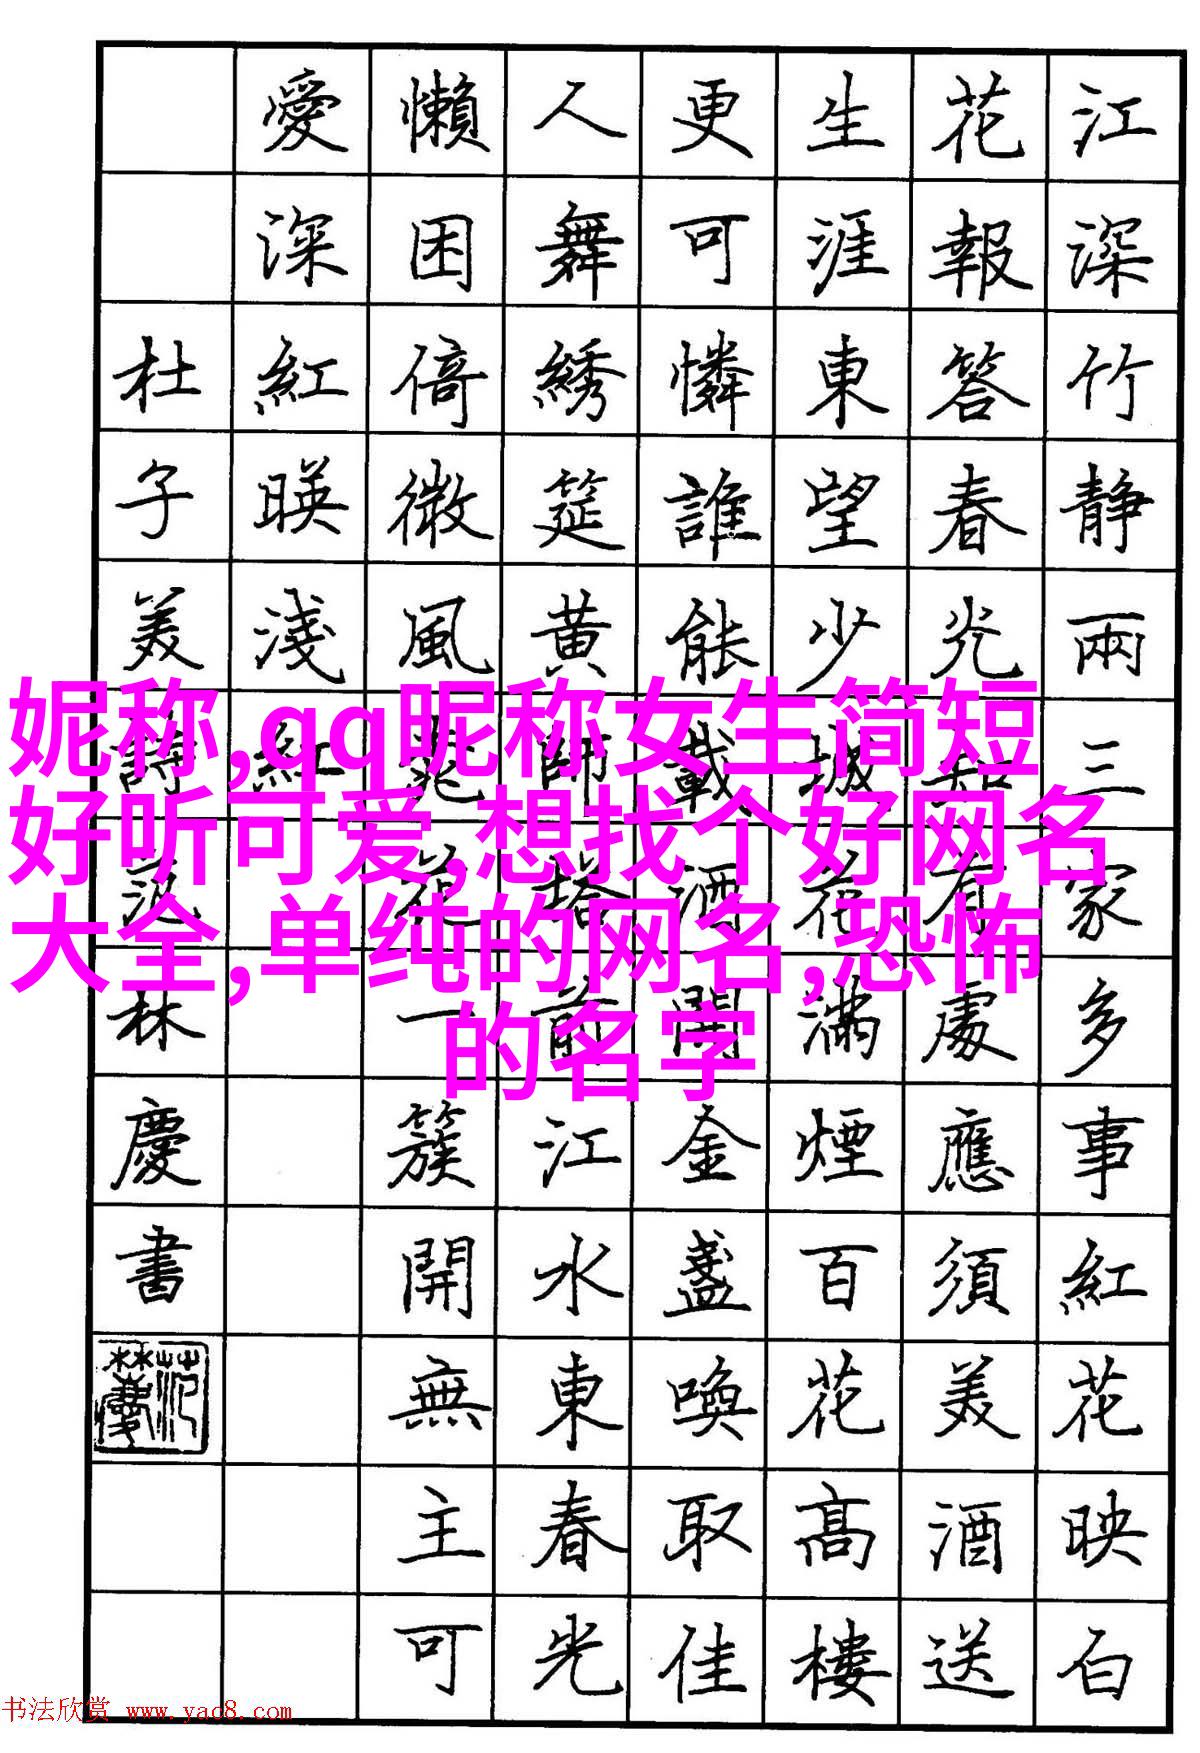 江深竹静兩三家多事紅花映白
花報答春光知有處應須美酒送
生涯東望少城花滿煙百花高樓
更可憐誰能載酒開金盞喚取佳
人舞綉筵黄師塔前江水東春光
懶困倚微風桃花一簇開無主可
愛深紅暎淺紅
杜子美詩范林慶書
妮称,qq昵称女生简短
好听可爱,想找个好网名
大全,单纯的网名,恐怖
的名字
书法欣赏 www.yac8.com